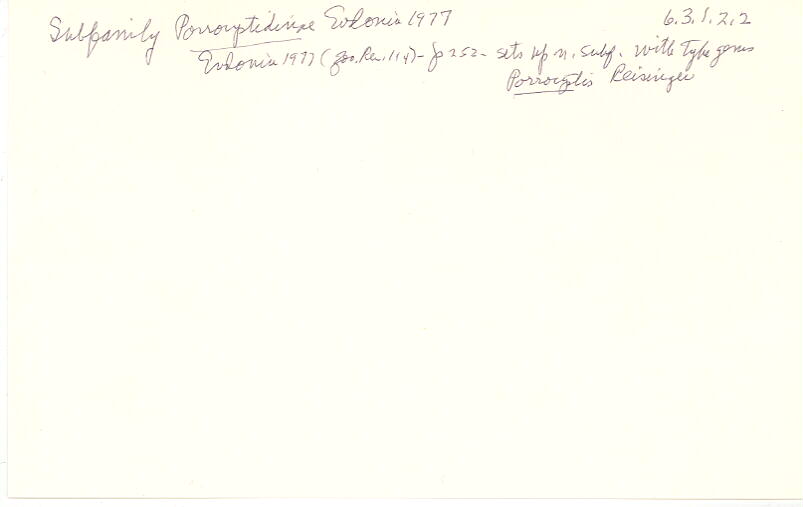 Subfamily Porrocyptidinae Evdonin 1977 6.3.1.2.2
Evdonin 1977 (Zoo. Rec. 114) - p 252 - sets up n. subf. with type genus
Porrocystis Reisinger